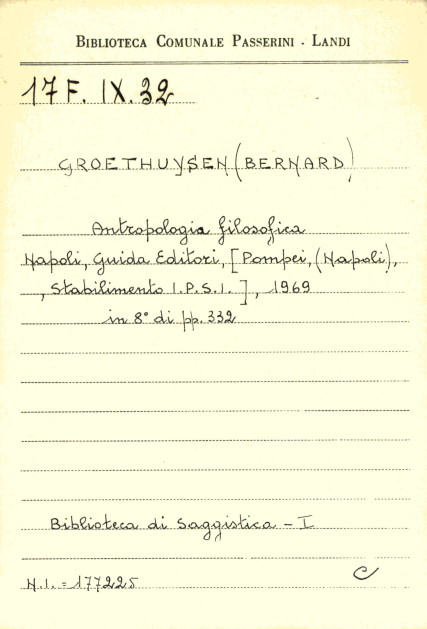 BIBLIOTECA COMUNALE PASSERINI - LANDI
17 F. IX. 32
GROETHUYSEN (BERNARD)
Antropologia filosofica
Napoli, Guida Editori, [Pompei, (Napoli),
, Stabilimento I.P.S.I.], 1969
in 8° di pp. 332
Biblioteca di Saggistica - I
N.I. = 177225
C